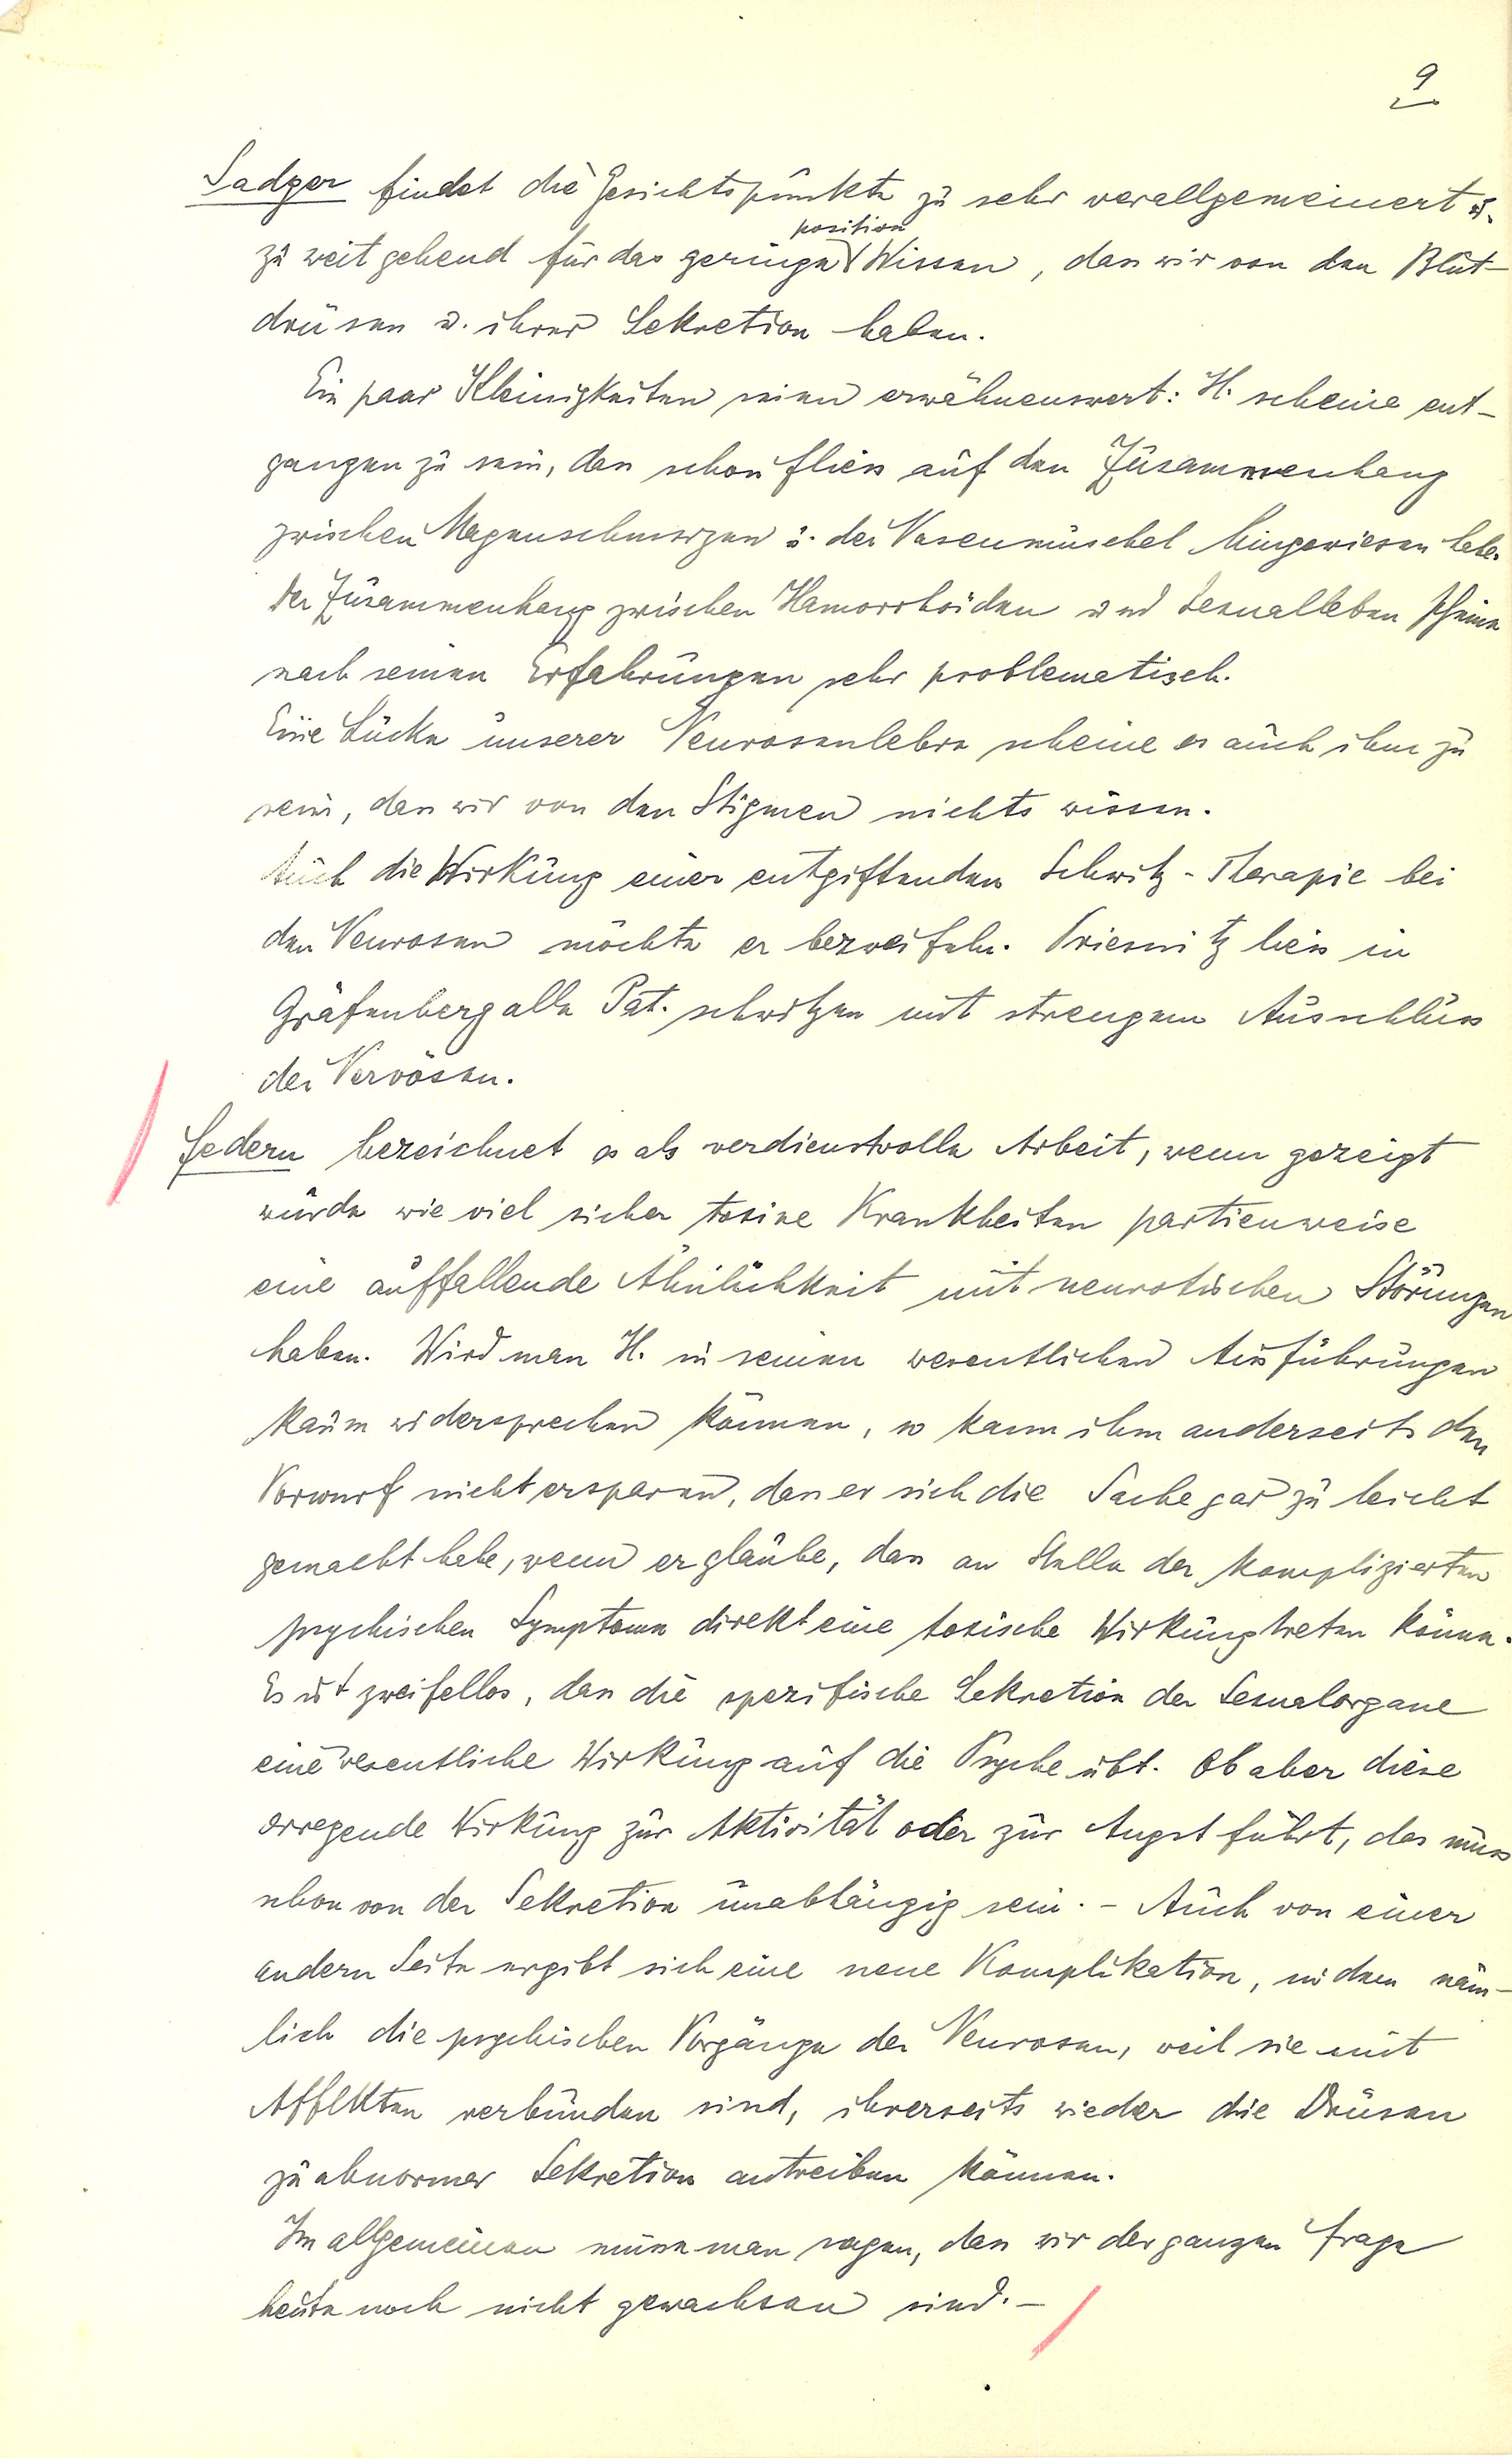 9
Sadger findet die Gesichtspunkte zu sehr verallgemeinert u.
position
zu weit gehend für das geringe Wissen, das wir von den Blut-
drüsen u. ihrer Sekretion haben.
Ein paar Kleinigkeiten seien erwähnenswert: H. scheine ent-
gangen zu sein, dass schon Fliess auf den Zusammenhang
zwischen Magenschmerzen u. der Nasenmuschel hingewiesen habe.
Der Zusammenhang zwischen Hämorrhoiden und Sexualleben scheine
nach seinen Erfahrungen sehr problematisch.
Eine Lücke unserer Neurosenlehre scheine es auch ihm zu
sein, dass wir von den Stigmen nichts wissen.
Auch die Wirkung einer entgiftenden Schwitz-Therapie bei
den Neurosen möchte er bezweifeln. Priesnitz liess in
Gräfenberg alle Pat. schwitzen mit strengem Ausschluss
der Nervösen.
Federn bezeichnet es als verdienstvolle Arbeit, wenn gezeigt
würde wie viel sicher toxine Krankheiten partienweise
eine auffallende Ähnlichkeit mit neurotischen Störungen
haben. Wird man H. in seinen wesentlichen Ausführungen
kaum widersprechen können, so kann ihm anderseits den
Vorwurf nicht ersparen, dass er sich die Sache gar zu leicht
gemacht habe, wenn er glaube, dass an Stelle der komplizierten
psychischen Symptome direkt eine toxische Wirkung treten könne.
Es ist zweifellos, dass die spezifische Sekretion der Sexualorgane
eine wesentliche Wirkung auf die Psyche übt. Ob aber diese
erregende Wirkung zur Aktivität oder zur Angst führt, das muss
schon von der Sekretion unabhängig sein. - Auch von einer
andern Seite ergibt sich eine neue Komplikation, indem näm-
lich die psychischen Vorgänge der Neurosen, weil sie mit
Affekten verbunden sind, ihrerseits wieder die Drüsen
zu abnormer Sekretion antreiben können.
Im allgemeinen müsse man sagen, dass wir der ganzen Frage
heute noch nicht gewachsen sind. -